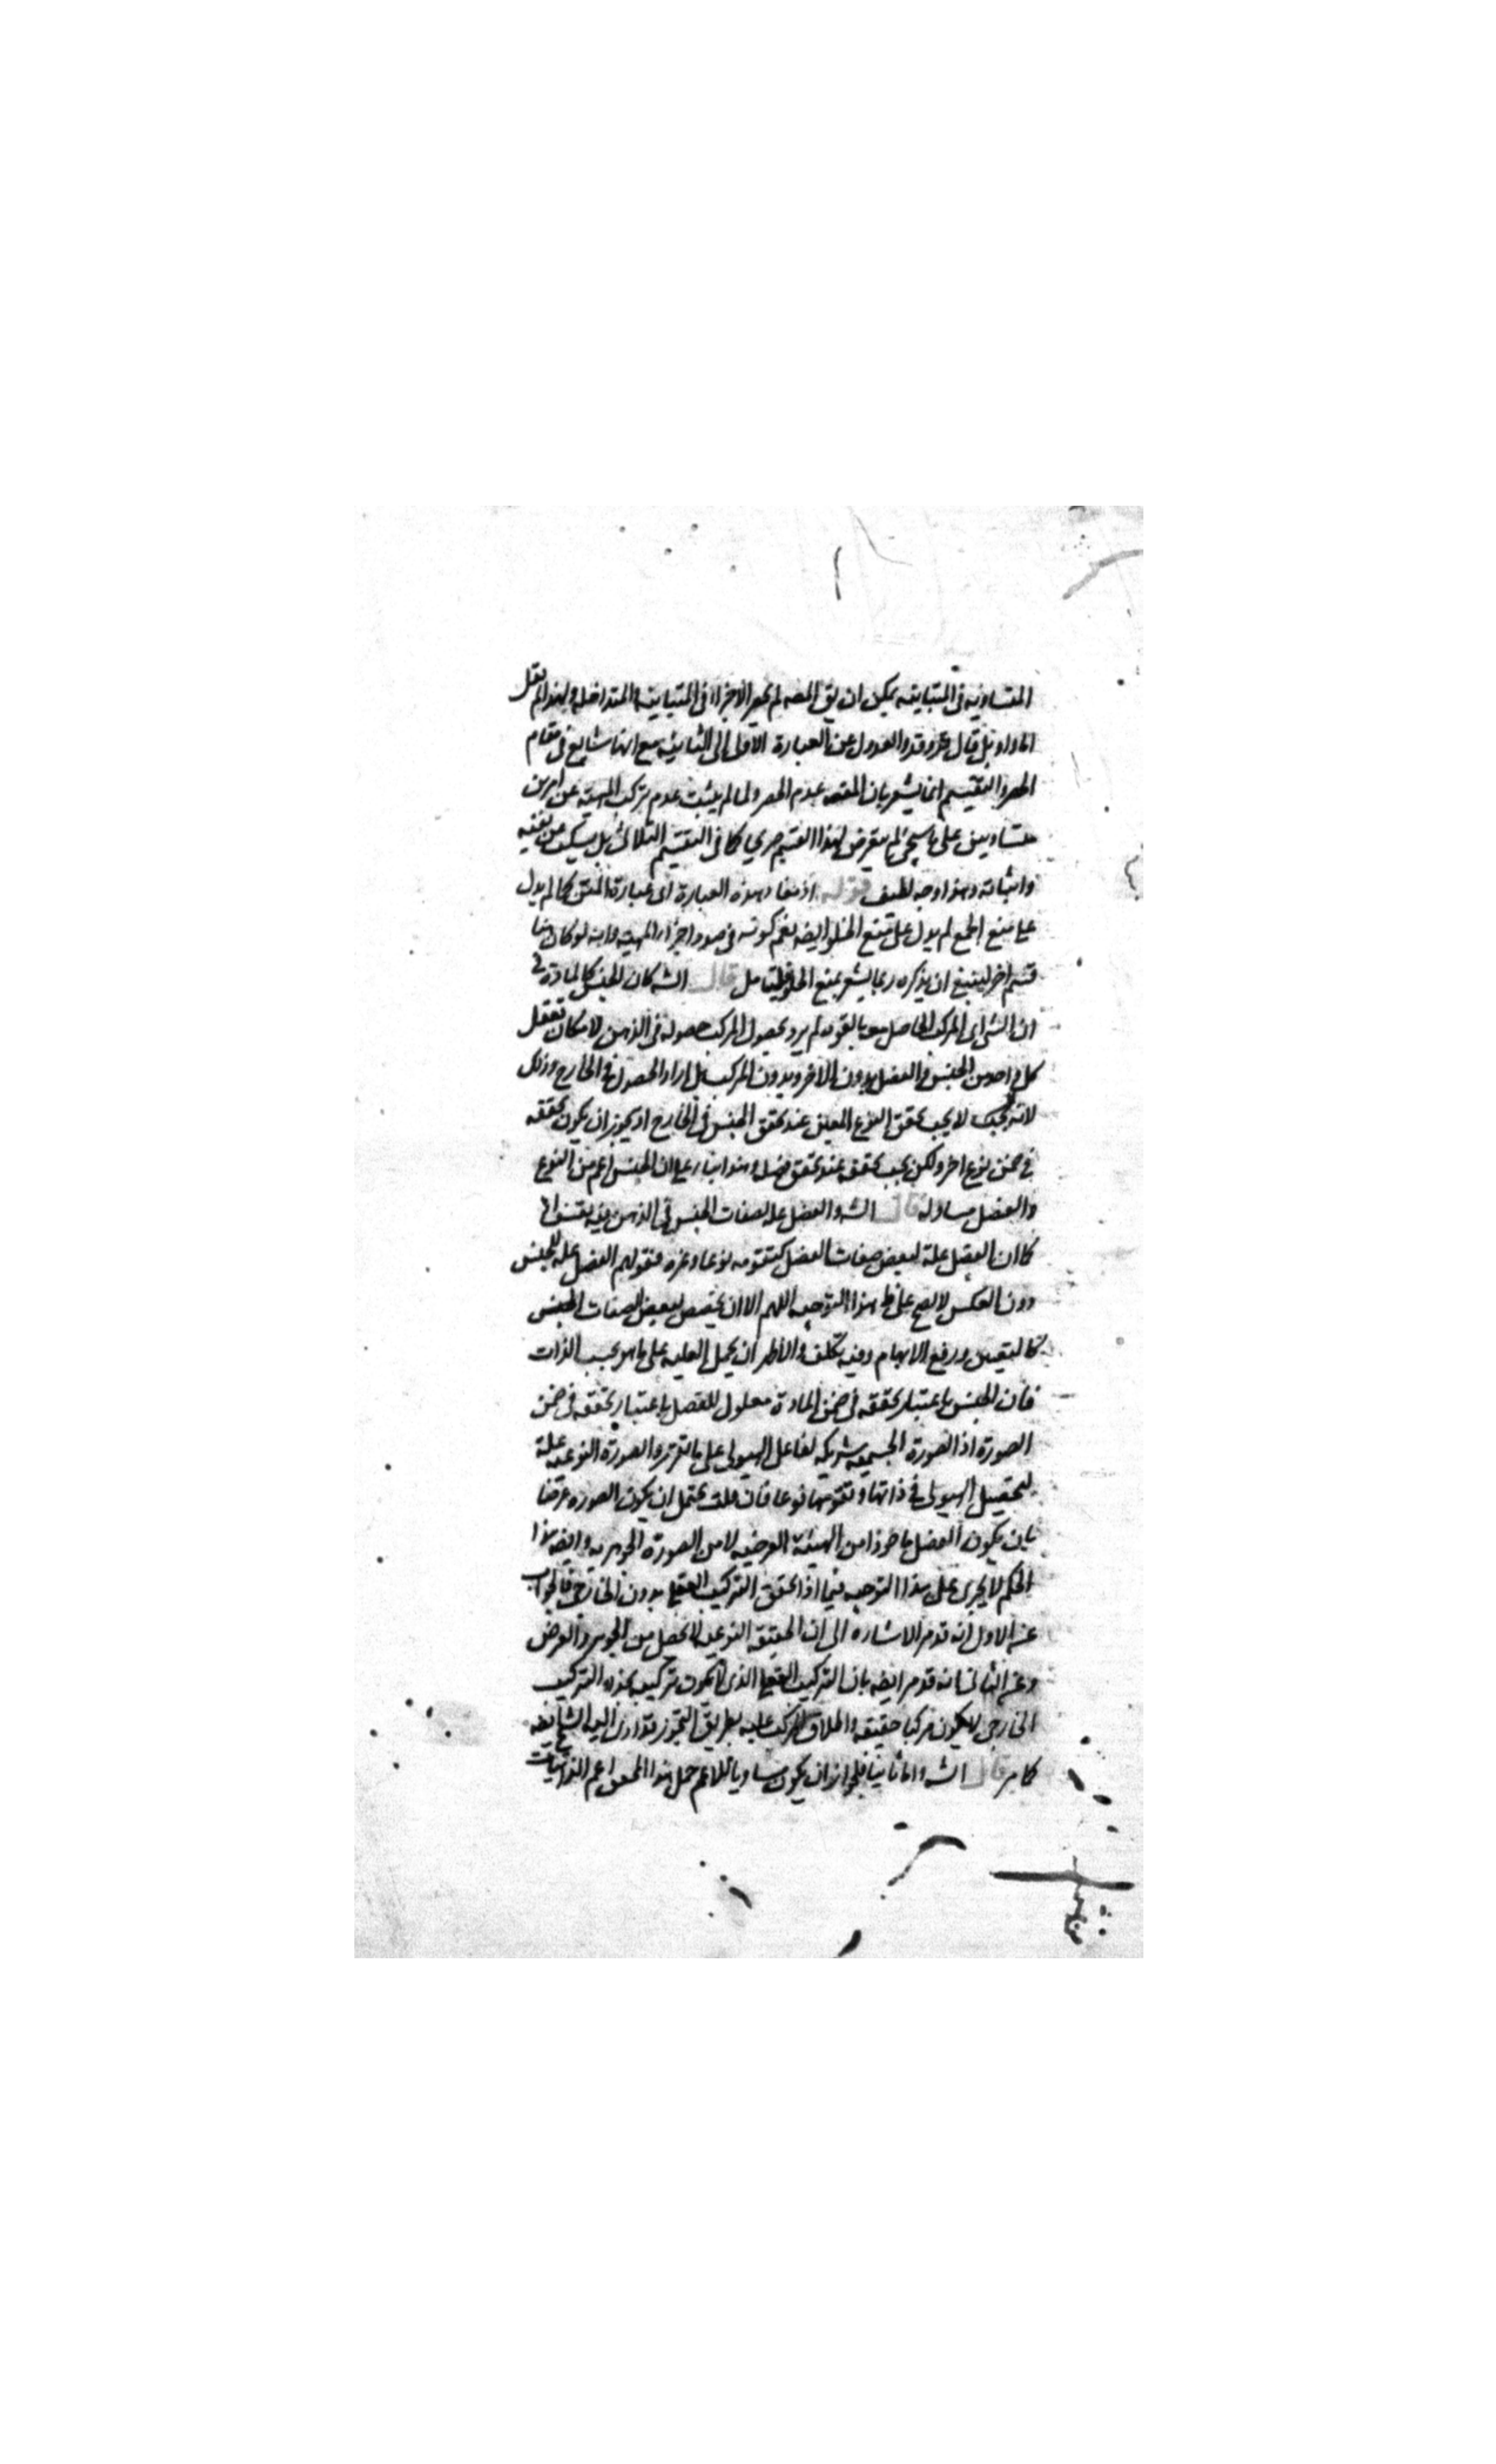 المتساوية فى المتباينة يمكن ان يق المصه لم يحصر الاجزاء فى المتباينة والمتداخلة ولهذا لم يقل
اما واو بل قال وقد والعدول عن العبارة الاولى الى الثانية مع انها شايع فى مقام
الحصر والتقسيم انما يشعر بان المقصه عدم الحصر ولما لم يثبت عدم تركب المهية عن امرين
متساويين على ما سيجئ لم يتعرض لهذا القسم صريحا كما فى التقسيم الثلاثى بل سكت عن نفيه
واثباته وهذا وجه لطيف قوله اذ مفاد هذه العبارة اى عبارة المتن كما لم يدل
على منع الجمع لم يدل على منع الخلو ايضه نعم كونه فى صدد اجزاء المهية وانه لو كان هنا
قسم اخر لينبغى ان يذكره ربما يشعر بمنع الخلو فليتامل قال الشه كان الجنس كالمادة فى
ان الشئ اى المركب الحاصل معه بالقوة لم يرد بحصول المركب حصوله فى الذهن لامكان تعقل
كل واحد من الجنس والفصل بدون الاخر وبدون المركب بل اراد الحصول فى الخارج وذلك
لانه لا يجب تحقق النوع المعين عند تحقق الجنس فى الخارج اذ يجوز ان يكون تحققه
فى ضمن نوع اخر ولكن يجب تحققه عند تحقق فصله وهذا بناء على ان الجنس اعم من النوع
والفصل مساو له قال الشه والفصل علة لصفات الجنس فى الذهن فيه
كما ان الفصل علة لبعض صفات الفصل كتقومه نوعا وغيره فقولهم الفصل علة للجنس
دون العكس لا يصح على هذا التوجيه اللهم الا ان يخصص لبعض الصفات الجنس
كالتعين ورفع الابهام وفيه تكلف والاظهر ان يحمل العلية على ما هو بحسب الذات
فان الجنس باعتبار تحققه فى ضمن المادة معلول للفصل باعتبار تحققه فى ضمن
الصورة اذ الصورة الجسمية شريكة لفاعل الهيولى على ما تقرر والصورة النوعية علة
لتحصيل الهيولى فى ذاتها وتقومها نوعا فان قلت يحتمل ان يكون الصورة عرضا
بان يكون الفصل ماخوذا من الهيئة العرضية لا من الصورة الجوهرية وايضه هذا
الحكم لا يجرى على هذا التوجيه فيما اذا تحقق التركيب العقلى بدون الخارجى فالجواب
عن الاول انه قد مر الاشارة الى ان الحقيقة النوعية لا تحصل من الجوهر والعرض
وعن الثانى انه قد مر ايضه بان التركيب العقلى الذى لا يكون تركيبه بحذاء التركيب
الخارجى لا يكون مركبا حقيقة واطلاق المركب عليه بطريق التجوز وقد اشار اليه الشه ايضه
كما مر قال الشه واما ثانيا فلجواز ان يكون مساويا للاعم حمل هذا المعنى اعم الذاتيات